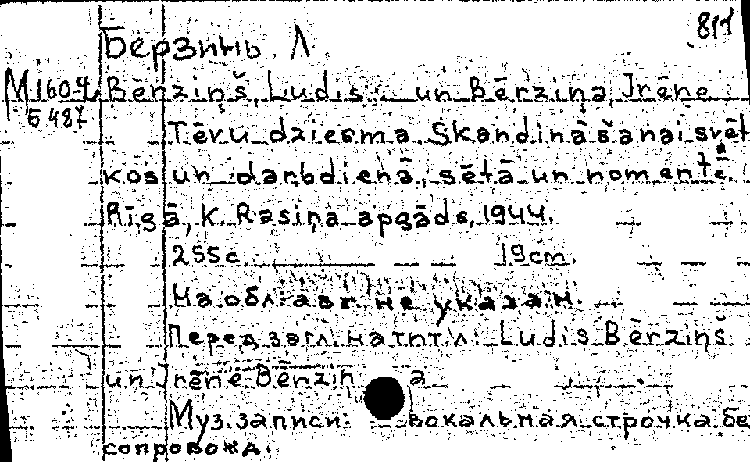 811
Берзинь Л
М160-4 Bērziņš, Ludis un Bērziņa, Irēne
Б 487
Tēvu dziesma. Skandināšanai svēt
kos un darbdienā, sētā un nometnē.
Rīgā, K. Rasiņa apgāds, 1944.
255 с. 19 cm.
На обл. авт. не указан.
Перед загл. на тит. л.: Ludis Bērziņš
un Irēne Bērziņa
Муз. записи: вокальная строчка бе
сопровожд.